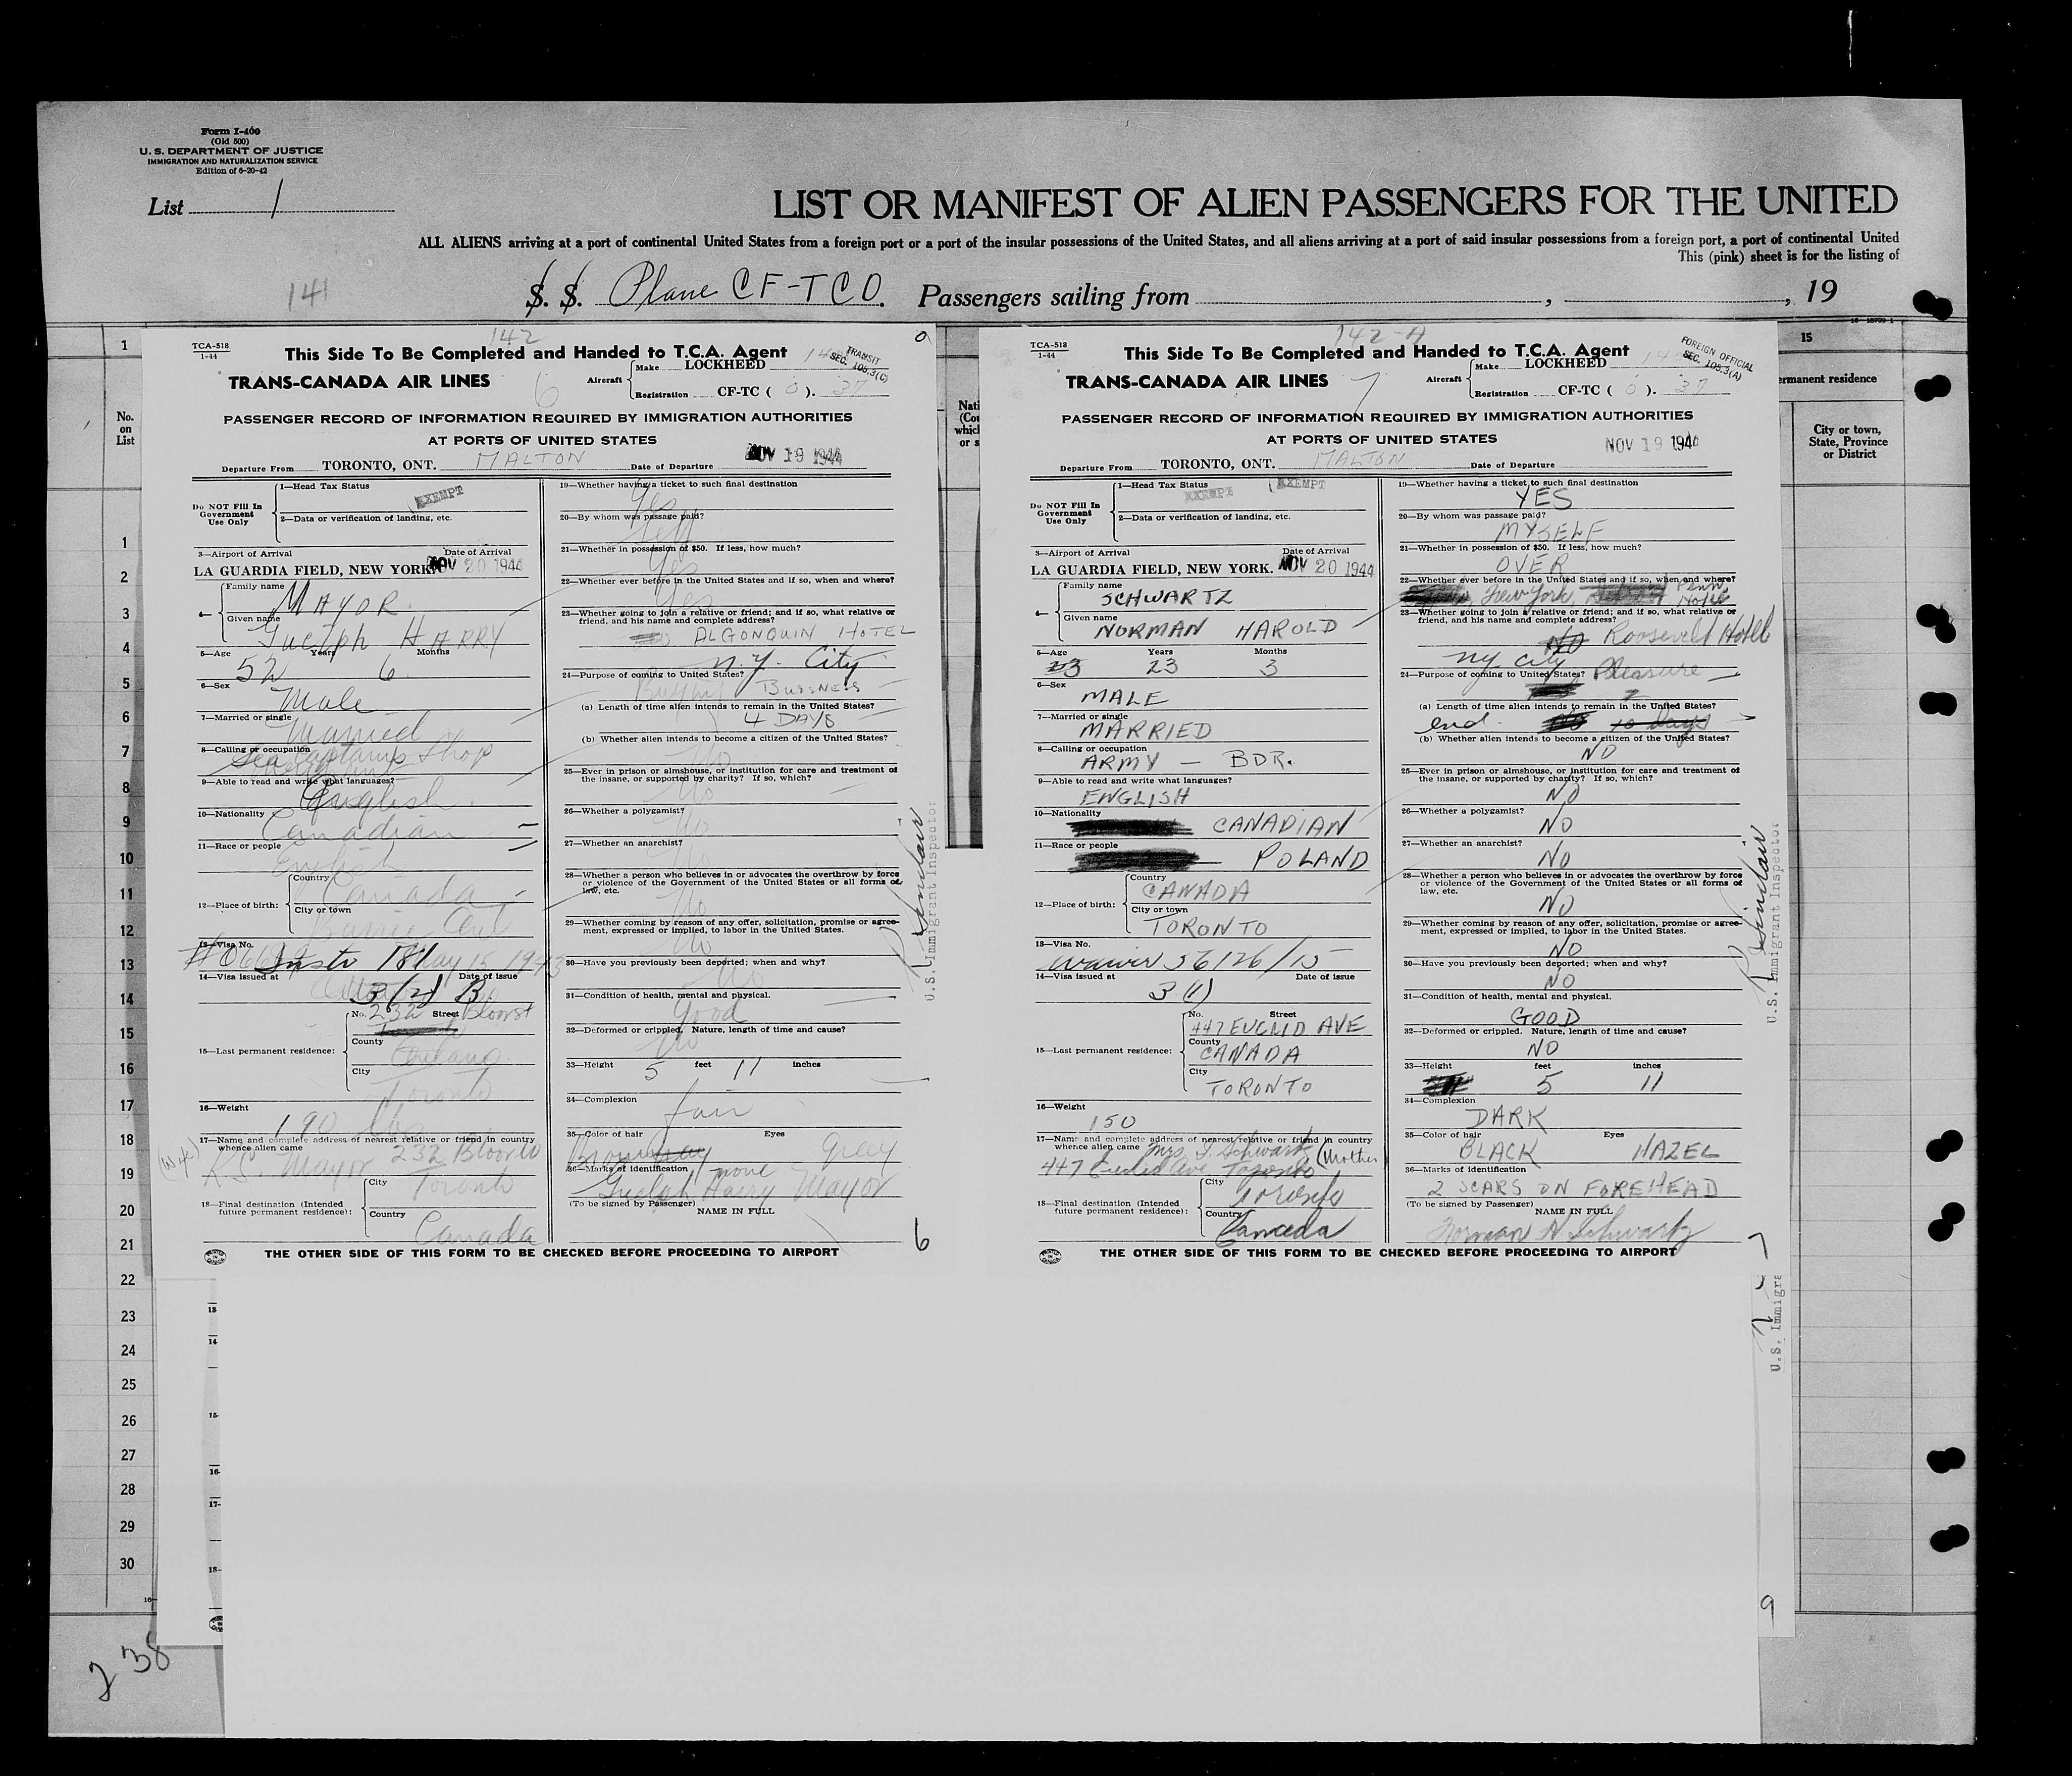 Form I-460
(Old 500)
U. S. DEPARTMENT OF JUSTICE
IMMIGRATION AND NATURALIZATION SERVICE
Edition of 6-20-42
List 1
LIST OR MANIFEST OF ALIEN PASSENGERS FOR THE UNITED
ALL ALIENS arriving at a port of continental United States from a foreign port or a port of the insular possessions of the United States, and all aliens arriving at a port of said insular possessions from a foreign port, a port of continental United
This (pink) sheet is for the listing of
141
S. S. Plane CF-TCO. Passengers sailing from , , 19
No. on List
1
1
2
3
4
5
6
7
8
9
10
11
12
13
14
15
16
17
18
19
20
21
22
23
24
25
26
27
28
29
30
238
142
TCA-518
1-44
This Side To Be Completed and Handed to T.C.A. Agent
TRANSIT
SEC. 105.3(C)
TRANS-CANADA AIR LINES 6
Aircraft Make LOCKHEED
Registration CF-TC ( O ). 37
PASSENGER RECORD OF INFORMATION REQUIRED BY IMMIGRATION AUTHORITIES
AT PORTS OF UNITED STATES
Departure From TORONTO, ONT. MALTON Date of Departure NOV 19 1944
Do NOT Fill In Government Use Only
1—Head Tax Status EXEMPT
2—Data or verification of landing, etc.
3—Airport of Arrival Date of Arrival
LA GUARDIA FIELD, NEW YORK. NOV 20 1944
4— Family name MAYOR.
Given name Guelph HARRY
5—Age 52 Years 6 Months
6—Sex Male
7—Married or single Married
8—Calling or occupation Shop
9—Able to read and write what languages? English
10—Nationality Canadian
11—Race or people English
12—Place of birth: Country Canada
City or town Barrie Ont
13—Visa No. Instr 181 May 15 1943
14—Visa issued at 3 (2) B. Date of issue
15—Last permanent residence: No. 232 Street Bloor st
County
City Toronto
16—Weight 190 lbs
17—Name and complete address of nearest relative or friend in country whence alien came (wife)
K.S. Mayor 232 Bloor W
18—Final destination (Intended future permanent residence): City Toronto
Country Canada
19—Whether having a ticket to such final destination
Yes
20—By whom was passage paid?
Self
21—Whether in possession of $50. If less, how much?
Yes
22—Whether ever before in the United States and if so, when and where?
Yes
23—Whether going to join a relative or friend; and if so, what relative or friend, and his name and complete address?
ALGONQUIN HOTEL
N.Y. City
24—Purpose of coming to United States? BUSSNESS
(a) Length of time alien intends to remain in the United States?
4 DAYS
(b) Whether alien intends to become a citizen of the United States?
No
25—Ever in prison or almshouse, or institution for care and treatment of the insane, or supported by charity? If so, which?
No
26—Whether a polygamist?
No
27—Whether an anarchist?
No
28—Whether a person who believes in or advocates the overthrow by force or violence of the Government of the United States or all forms of law, etc.
No
29—Whether coming by reason of any offer, solicitation, promise or agreement, expressed or implied, to labor in the United States.
No
30—Have you previously been deported; when and why?
No
31—Condition of health, mental and physical.
Good
32—Deformed or crippled. Nature, length of time and cause?
No
33—Height 5 feet 11 inches
34—Complexion fair
35—Color of hair Brown Eyes Gray
36—Marks of identification none
Guelph Harry Mayor
(To be signed by Passenger) NAME IN FULL
6
THE OTHER SIDE OF THIS FORM TO BE CHECKED BEFORE PROCEEDING TO AIRPORT
Sinclair
U.S. Immigrant Inspector
142-A
TCA-518
1-44
This Side To Be Completed and Handed to T.C.A. Agent
FOREIGN OFFICIAL
SEC. 105.3(A)
TRANS-CANADA AIR LINES 7
Aircraft Make LOCKHEED
Registration CF-TC ( O ). 37
PASSENGER RECORD OF INFORMATION REQUIRED BY IMMIGRATION AUTHORITIES
AT PORTS OF UNITED STATES
Departure From TORONTO, ONT. MALTON Date of Departure NOV 19 1944
Do NOT Fill In Government Use Only
1—Head Tax Status EXEMPT EXEMPT
2—Data or verification of landing, etc.
3—Airport of Arrival Date of Arrival
LA GUARDIA FIELD, NEW YORK. NOV 20 1944
4— Family name SCHWARTZ
Given name NORMAN HAROLD
5—Age 23 Years 23 Months 3
6—Sex MALE
7—Married or single MARRIED
8—Calling or occupation ARMY — BDR.
9—Able to read and write what languages? ENGLISH
10—Nationality CANADIAN
11—Race or people POLAND
12—Place of birth: Country CANADA
City or town TORONTO
13—Visa No. Waiver 56126/15
14—Visa issued at 3(1) Date of issue
15—Last permanent residence: No. Street 447 EUCLID AVE
County CANADA
City TORONTO
16—Weight 150
17—Name and complete address of nearest relative or friend in country whence alien came Mrs. Schwartz (Mother)
447 Euclid Ave Toronto
18—Final destination (Intended future permanent residence): City Toronto
Country Canada
19—Whether having a ticket to such final destination
YES
20—By whom was passage paid?
MYSELF
21—Whether in possession of $50. If less, how much?
OVER
22—Whether ever before in the United States and if so, when and where?
New York, Penn Hotel
23—Whether going to join a relative or friend; and if so, what relative or friend, and his name and complete address?
NO Roosevelt Hotel
NY City
24—Purpose of coming to United States? Pleasure
(a) Length of time alien intends to remain in the United States?
end. 10 days
(b) Whether alien intends to become a citizen of the United States?
NO
25—Ever in prison or almshouse, or institution for care and treatment of the insane, or supported by charity? If so, which?
NO
26—Whether a polygamist?
NO
27—Whether an anarchist?
NO
28—Whether a person who believes in or advocates the overthrow by force or violence of the Government of the United States or all forms of law, etc.
NO
29—Whether coming by reason of any offer, solicitation, promise or agreement, expressed or implied, to labor in the United States.
NO
30—Have you previously been deported; when and why?
NO
31—Condition of health, mental and physical.
GOOD
32—Deformed or crippled. Nature, length of time and cause?
NO
33—Height 5 feet 11 inches
34—Complexion DARK
35—Color of hair BLACK Eyes HAZEL
36—Marks of identification
2 SCARS ON FOREHEAD
(To be signed by Passenger) NAME IN FULL
Norman H Schwartz
7
THE OTHER SIDE OF THIS FORM TO BE CHECKED BEFORE PROCEEDING TO AIRPORT
Sinclair
U.S. Immigrant Inspector
U.S. Immigra
9
15
ermanent residence
City or town, State, Province or District